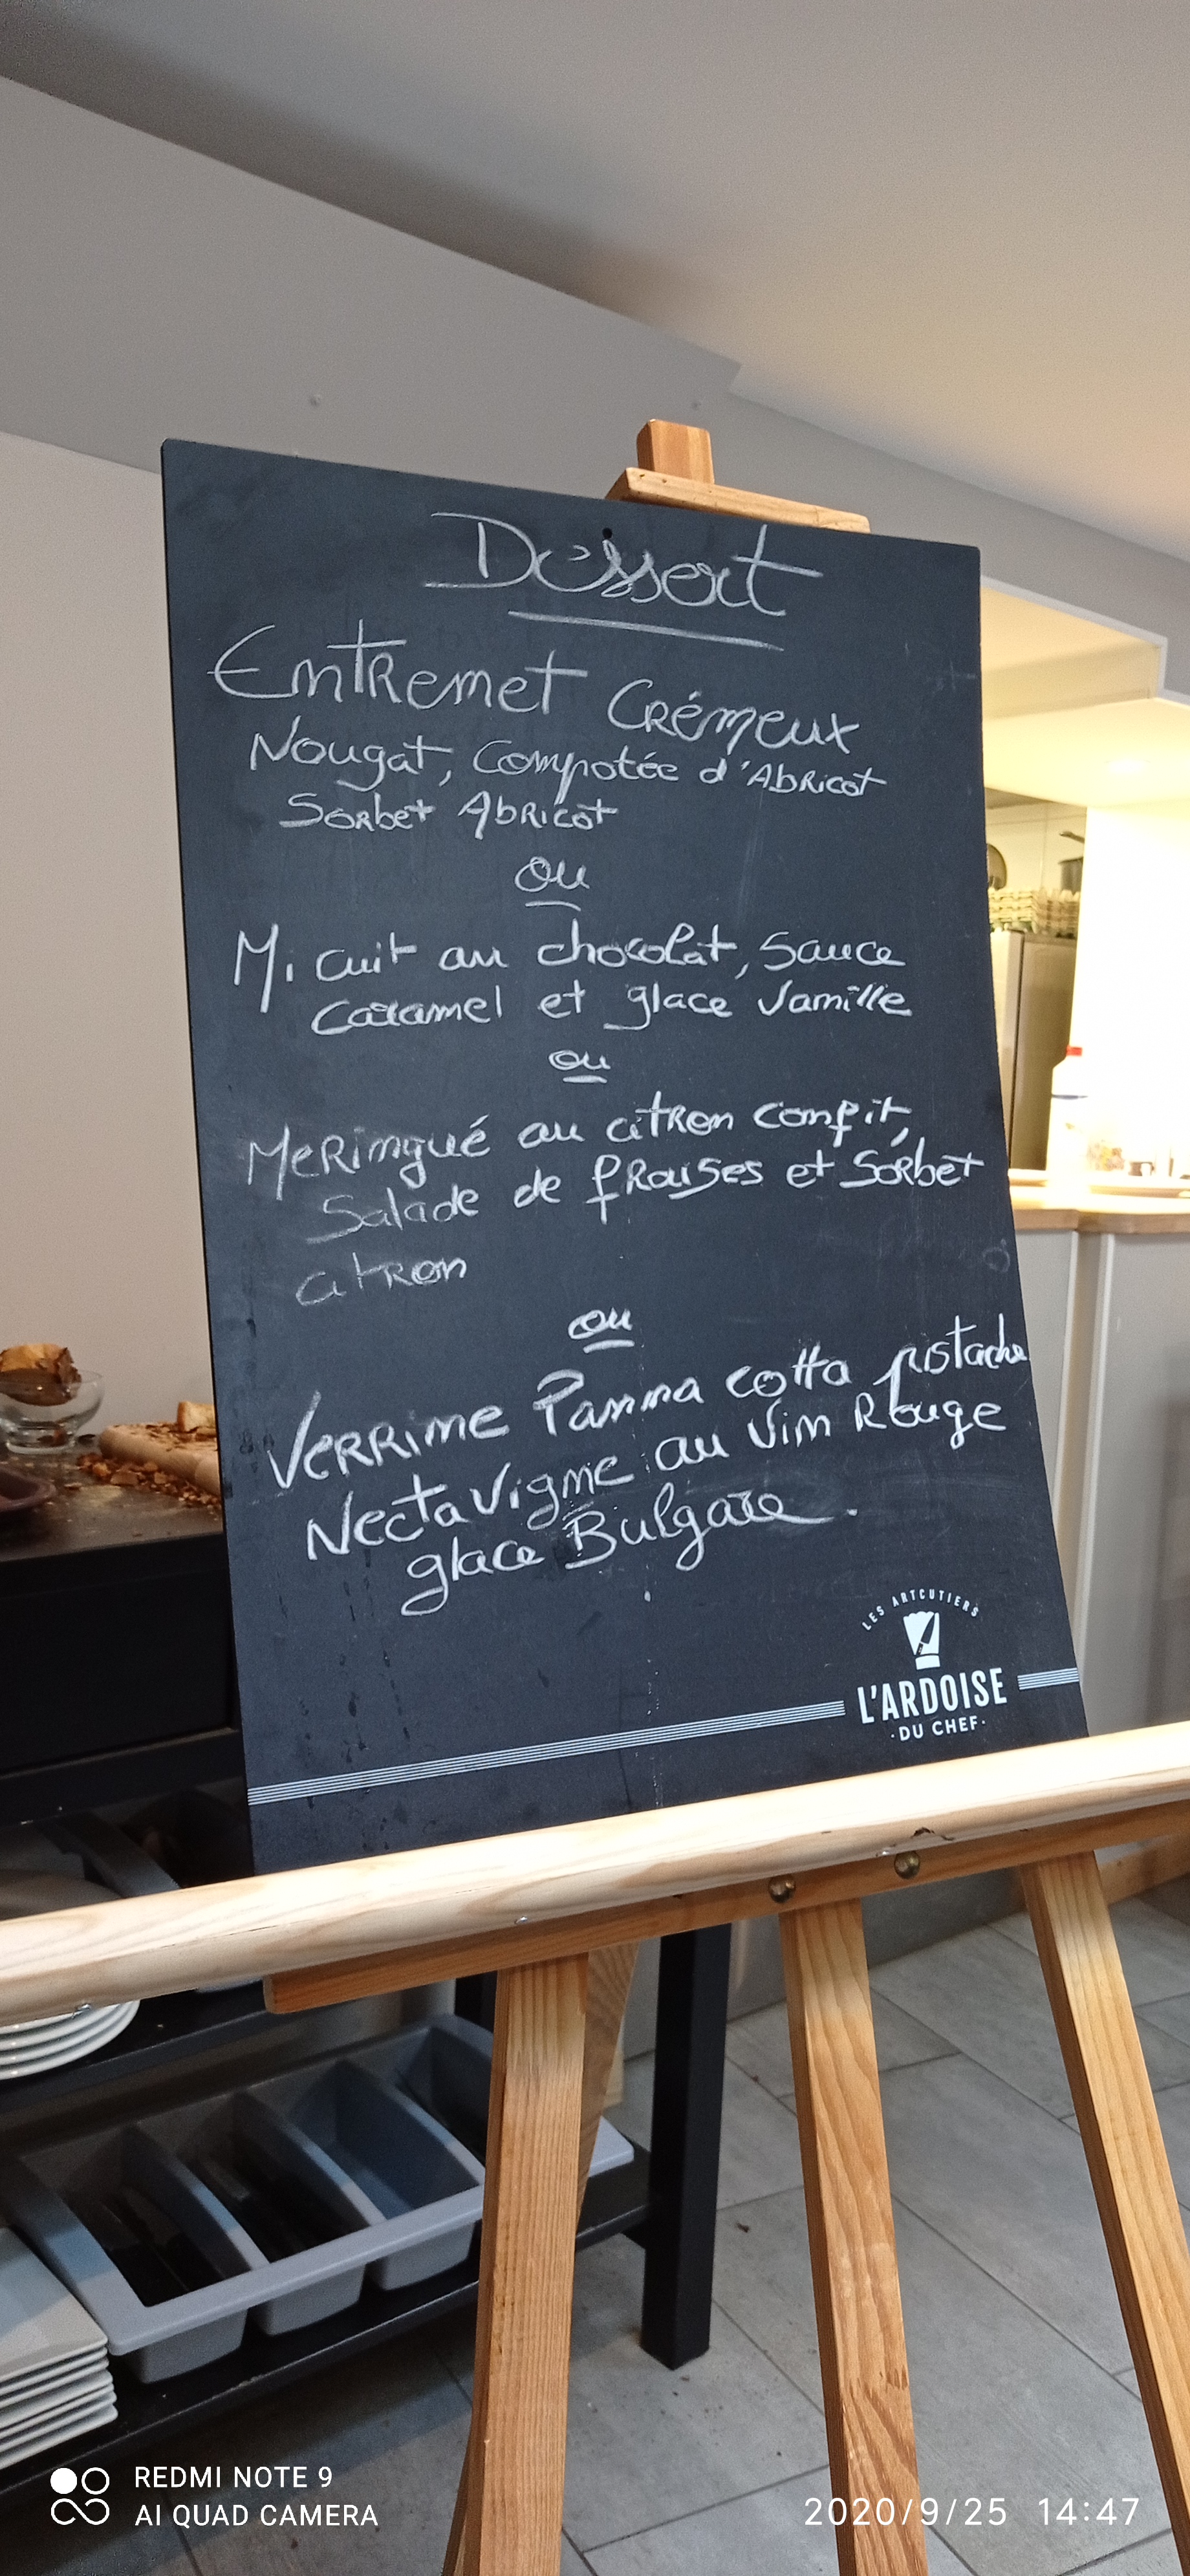 Dessert
Entremet Crémeux
Nougat, Compotée d'Abricot
Sorbet Abricot
ou
Mi cuit au chocolat, Sauce
Caramel et glace Vanille
ou
Meringué au citron confit,
Salade de fraises et Sorbet
citron
ou
Verrine Panna cotta pistache
Nectavigne au Vin Rouge
glace Bulgare.
LES ARTCUTIERS
L'ARDOISE
·DU CHEF·
REDMI NOTE 9
AI QUAD CAMERA
2020/9/25 14:47